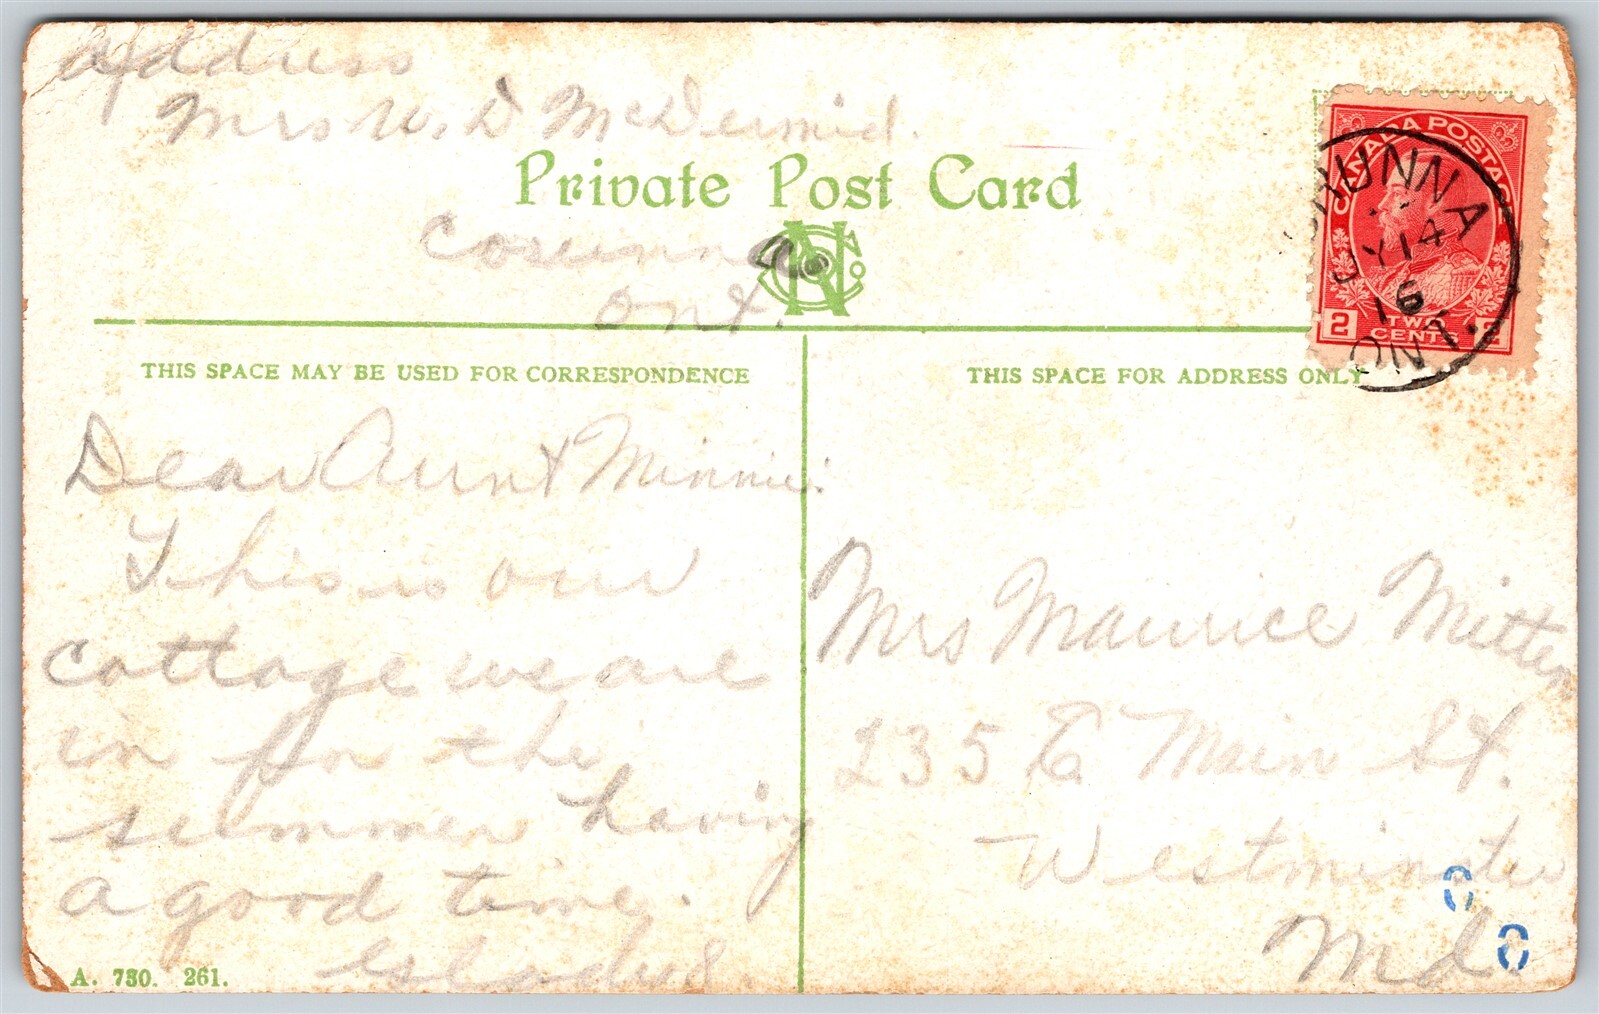 Address
Mrs W. D McDermid.
Private Post Card
Corunna
Ont.
CANADA POSTAGE
RUNNA
14
16
ONT.
2 TWO CENTS 2
THIS SPACE MAY BE USED FOR CORRESPONDENCE
THIS SPACE FOR ADDRESS ONLY
Dear Aunt Minnie:
This is our
cottage we are
in for the
summer having
a good time.
Mrs Maurice Mitten
235 E Main St.
Westminster
Md.
A. 730. 261.